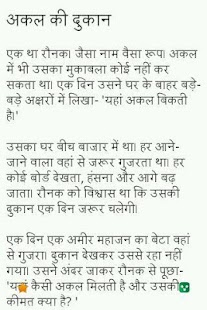 अकल की दुकान
एक था रौनक। जैसा नाम वैसा रूप। अकल
में भी उसका मुकाबला कोई नहीं कर
सकता था। एक दिन उसने घर के बाहर बड़े-
बड़े अक्षरों में लिखा- 'यहां अकल बिकती
है।'
उसका घर बीच बाजार में था। हर आने-
जाने वाला वहां से जरूर गुजरता था। हर
कोई बोर्ड देखता, हंसना और आगे बढ़
जाता। रौनक को विश्वास था कि उसकी
दुकान एक दिन जरूर चलेगी।
एक दिन एक अमीर महाजन का बेटा वहां
से गुजरा। दुकान देखकर उससे रहा नहीं
गया। उसने अंदर जाकर रौनक से पूछा-
कैसी अकल मिलती है और उसकी
कीमत क्या है? '